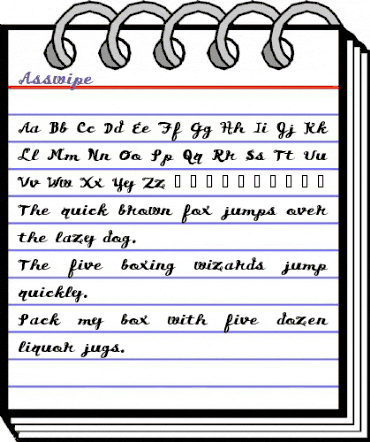 Asswipe
Aa Bb Cc Dd Ee Ff Gg Hh Ii Jj Kk
Ll Mm Nn Oo Pp Qq Rr Ss Tt Uu
Vv Ww Xx Yy Zz
The quick brown fox jumps over
the lazy dog.
The five boxing wizards jump
quickly.
Pack my box with five dozen
liquor jugs.